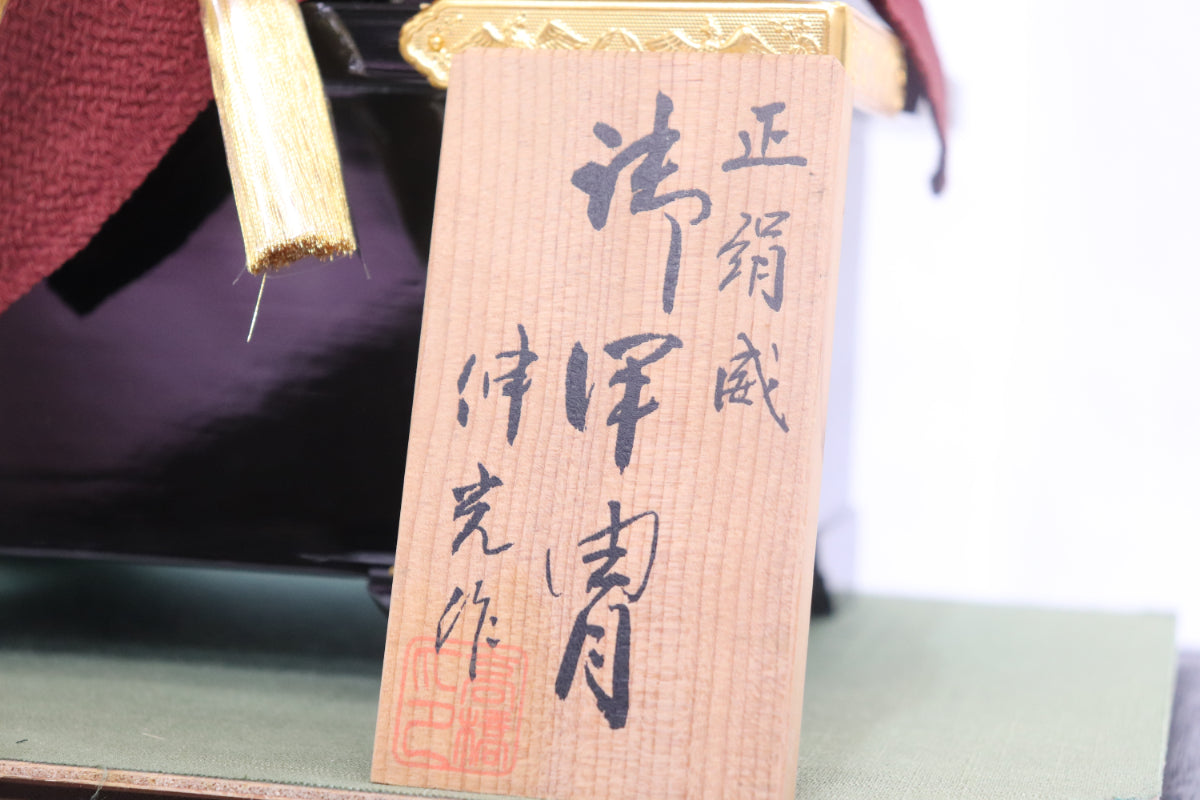 正絹威
御甲冑
伸光作
高橋之印